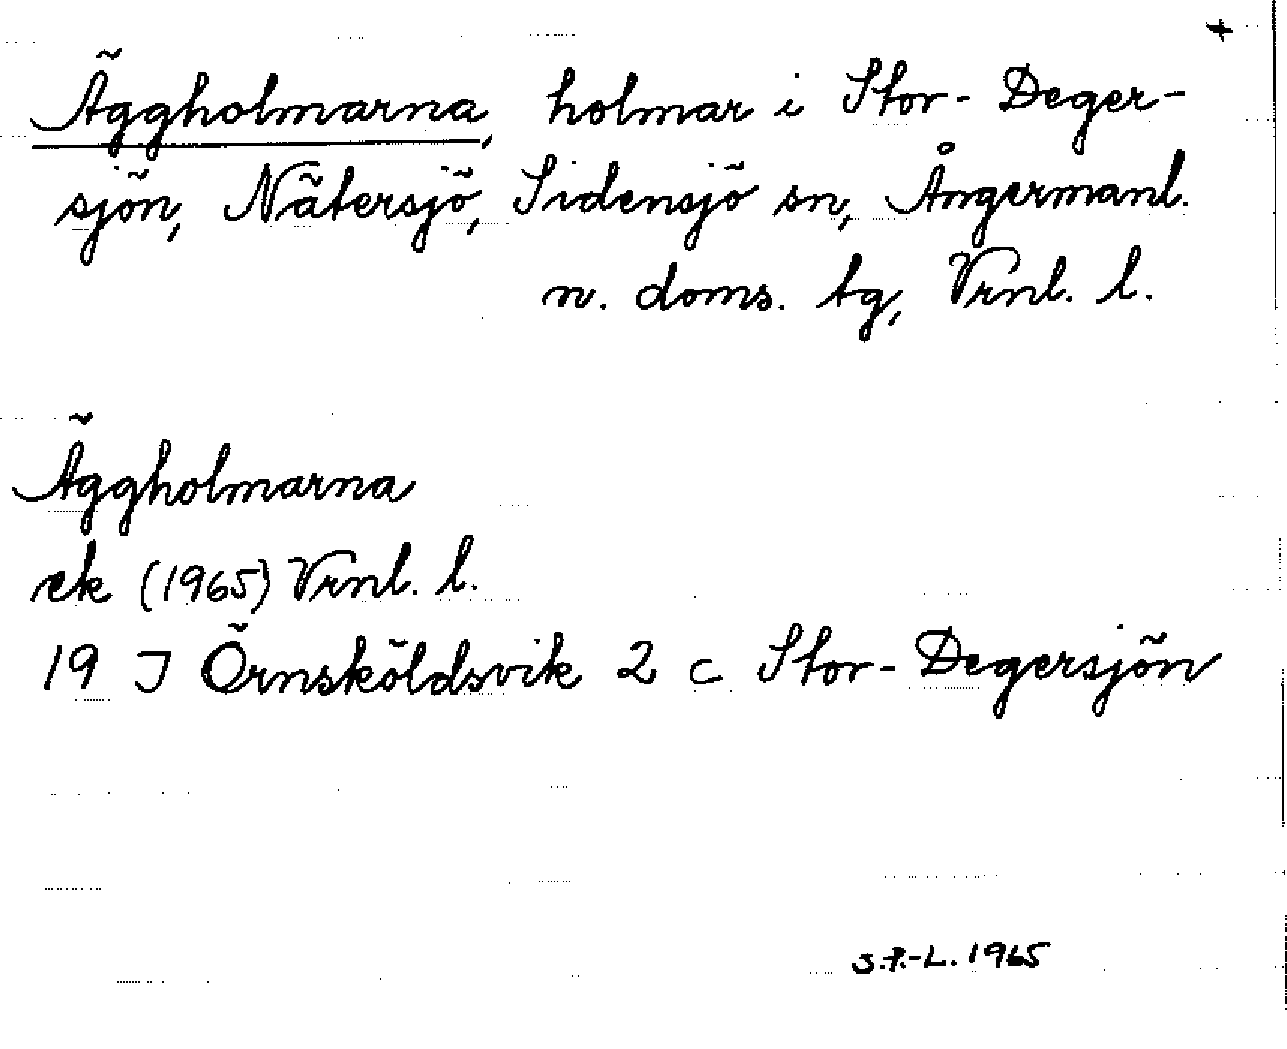 +
Äggholmarna, holmar i Stor-Deger-
sjön, Nätersjö, Sidensjö sn, Ångermanl.
n. doms. tg, Vrnl. l.
Äggholmarna
ek (1965) Vrnl. l.
19 J Örnsköldsvik 2 c Stor-Degersjön
S.P.-L. 1965